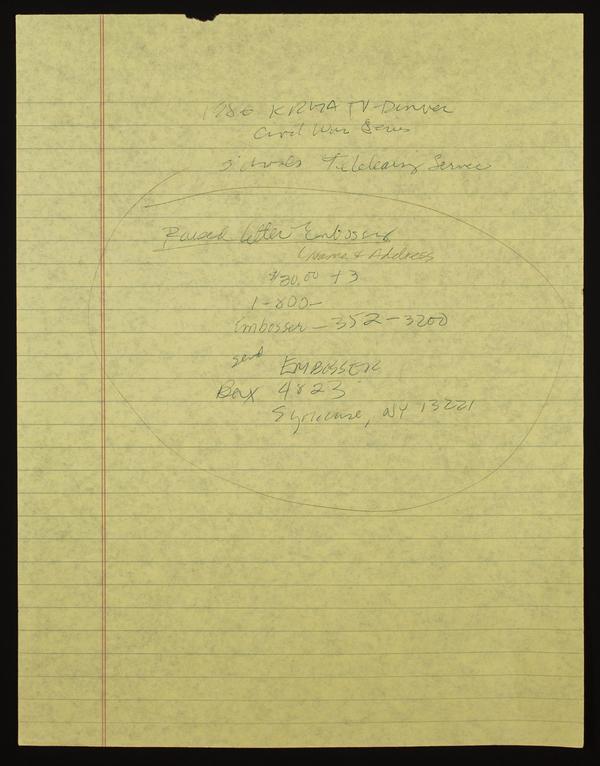 1986 KRMA TV-Denver
Civil War Series
Schools Telelearning Service
Raised letter Embosser
(name & Address
$30.00 + 3
1-800-
Embosser - 352-3200
send EMBOSSER
Box 4823
Syracuse, NY 13221